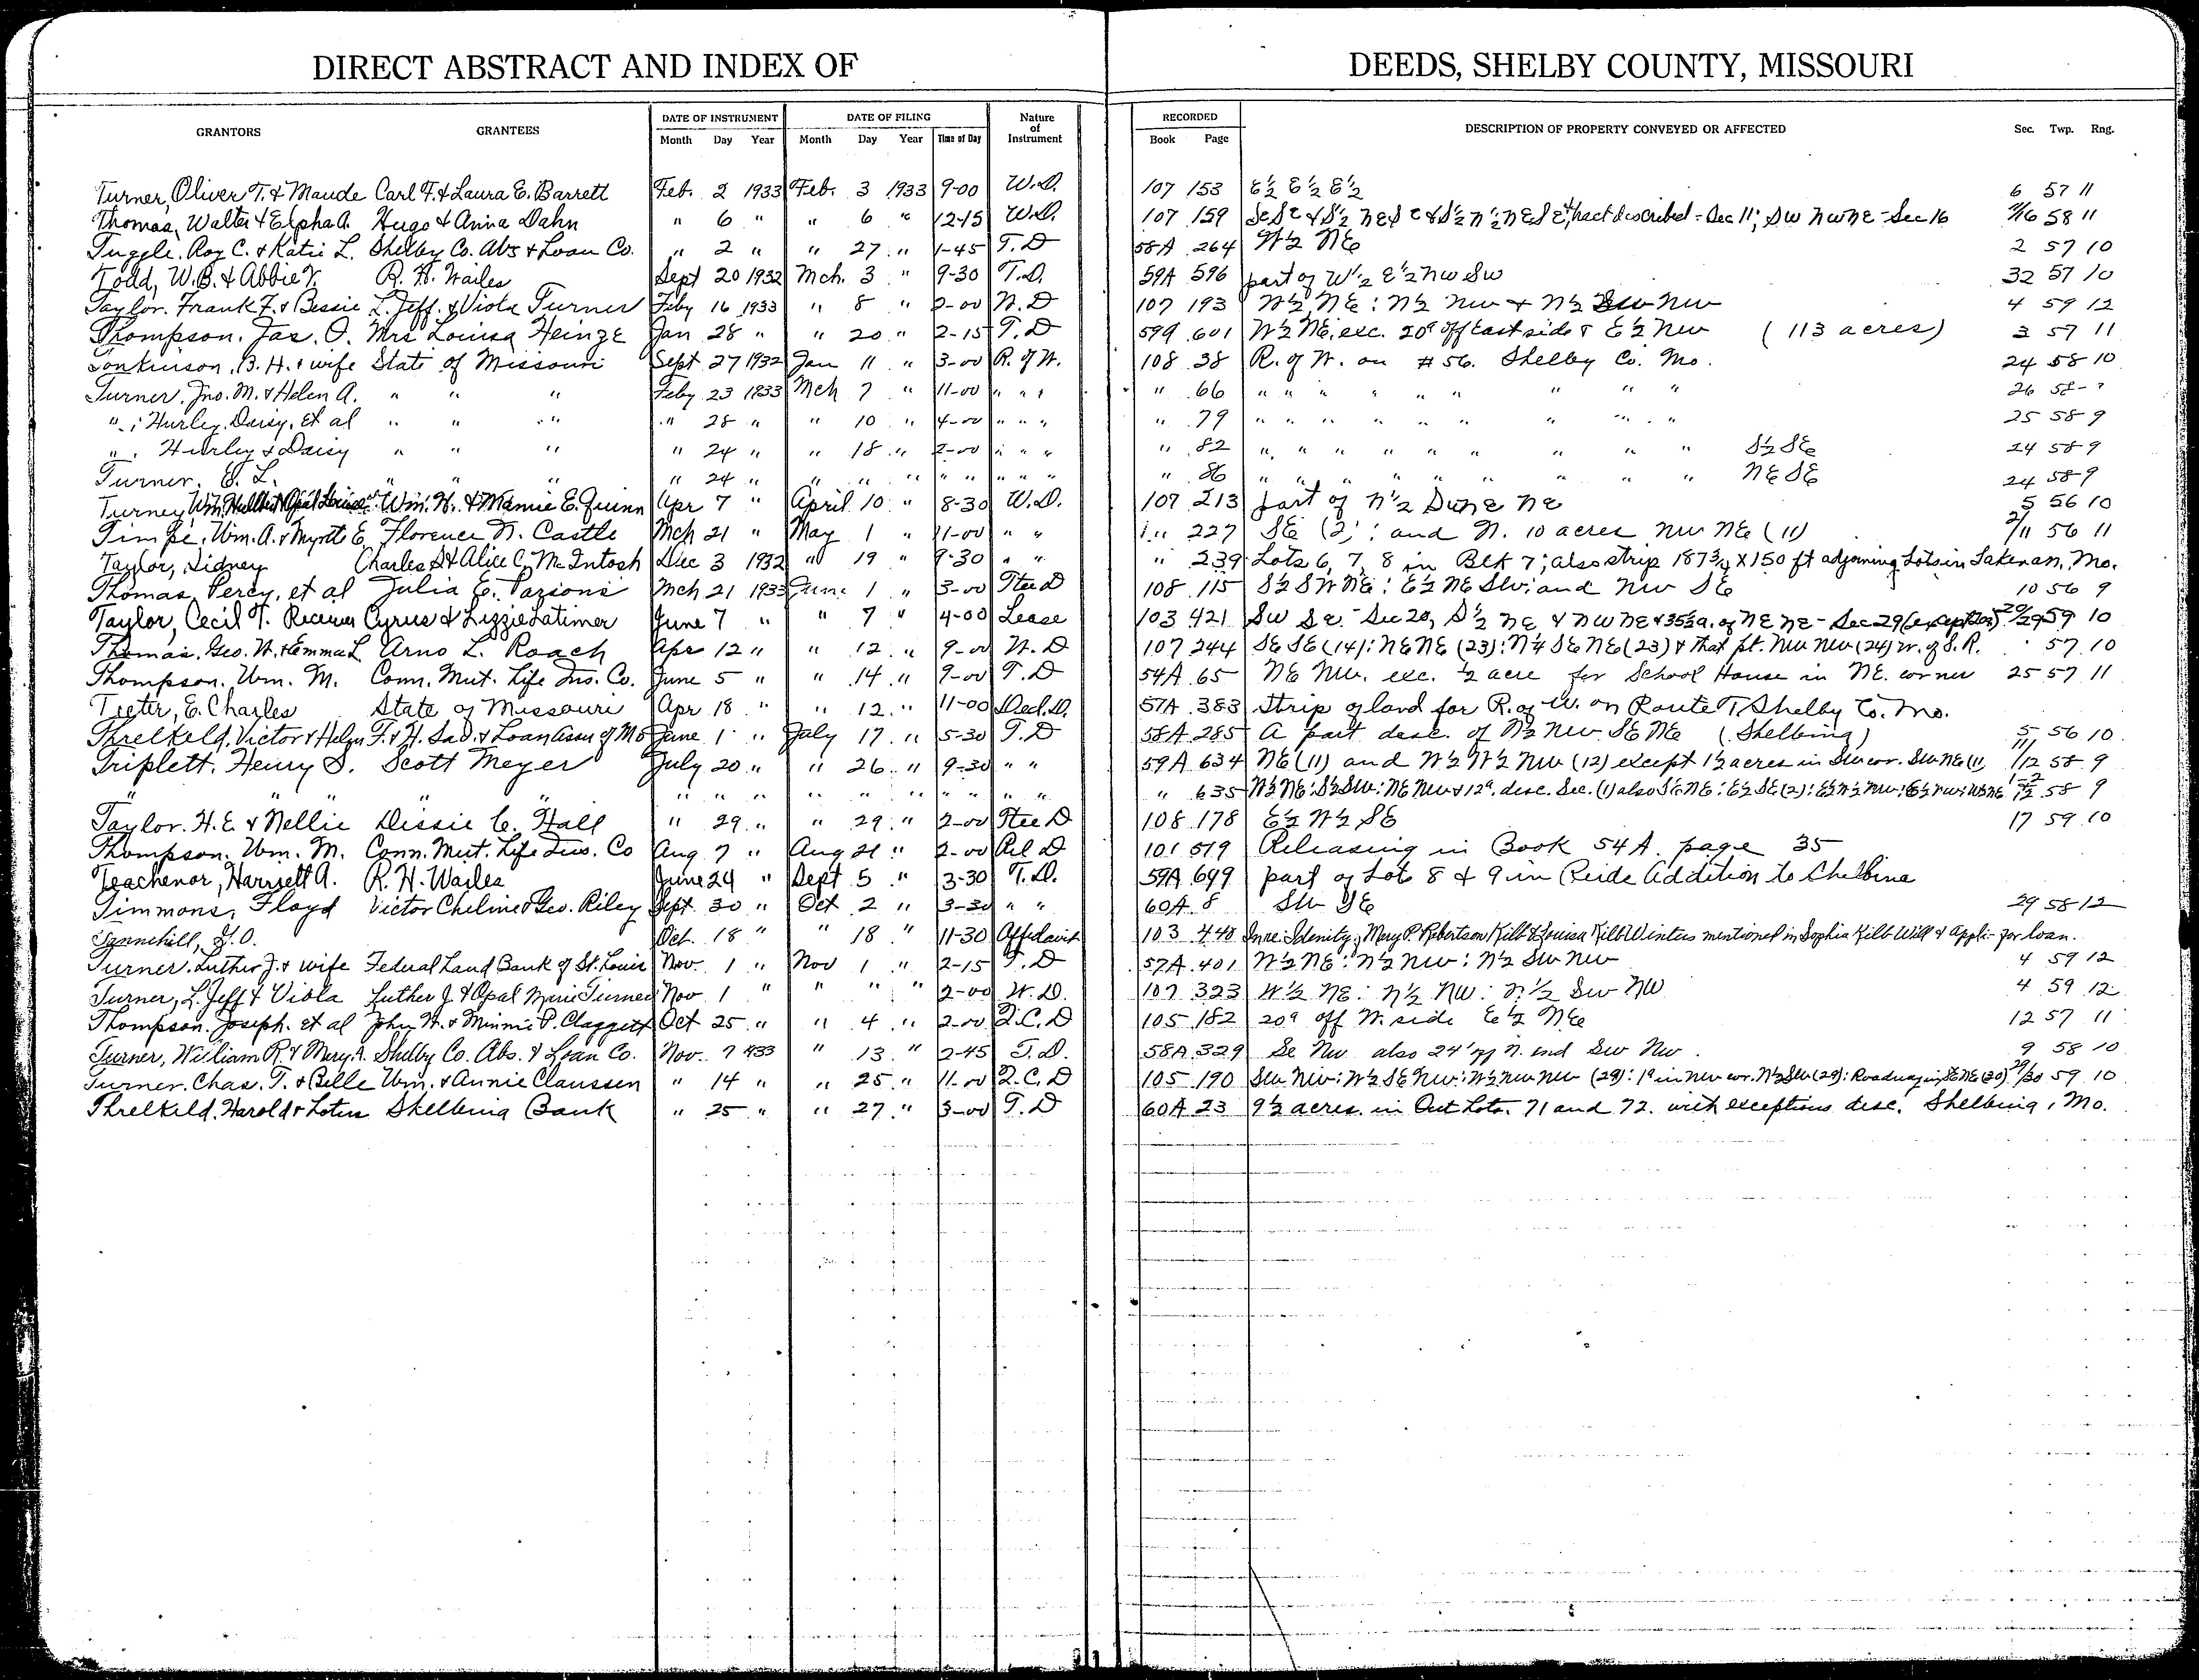 DIRECT ABSTRACT AND INDEX OF DEEDS, SHELBY COUNTY, MISSOURI
GRANTORS GRANTEES DATE OF INSTRUMENT DATE OF FILING Nature of Instrument RECORDED DESCRIPTION OF PROPERTY CONVEYED OR AFFECTED Sec. Twp. Rng.
Month Day Year Month Day Year Time of Day Book Page
Turner, Oliver T. & Maude Carl F. & Laura E. Barrett Feb. 2 1933 Feb. 3 1933 9-00 W.D. 107 153 E½ E½ E½ 6 57 11
Thomas, Walter & Elpha A. Hugo & Anna Dahn " 6 " " 6 " 12-15 W.D. 107 159 SE SE & S½ NE SE & S½ N½ NE SE, tract described - Sec 11; SW NW NE - Sec 16 11/16 58 11
Tuggle, Roy C. & Katie L. Shelby Co. Abs & Loan Co. " 2 " " 27 " 1-45 T.D 58A 264 W½ NE 2 57 10
Todd, W.B. & Abbie V. R. H. Wailes Sept 20 1932 Mch. 3 " 9-30 T.D. 59A 596 part of W½ E½ NW SW 32 57 10
Taylor, Frank F. & Bessie L. Jeff. & Viola Turner Feby 16 1933 " 8 " 2-00 W.D 107 193 W½ NE: N½ NW & N½ SW NW 4 59 12
Thompson, Jas. O. Mrs Louisa Heinze Jan 28 " " 20 " 2-15 T.D 59A 601 W½ NE, exc. 20a off East side & E½ NW (113 acres) 3 57 11
Tonkinson, B. H. & wife State of Missouri Sept 27 1932 Jan 11 " 3-00 R. of W. 108 38 R. of W. on #56. Shelby Co. Mo. 24 58 10
Turner, Jno. M. & Helen A. " " " Feby 23 1933 Mch 7 " 11-00 " " " " 66 " " " " " " " " " 26 58
" , Hurley, Daisy, et al " " " " 28 " " 10 " 4-00 " " " " 79 " " " " " " " " " 25 58 9
" , Hurley & Daisy " " " " 24 " " 18 " 2-00 " " " " 82 " " " " " " " " " S½ SE 24 58 9
Turner, E. L. " " " " 24 " " " " " " " " " 86 " " " " " " " " " NE SE 24 58 9
Turney, Wm. & Opal Wm. H. & Mamie E. Quinn Apr 7 " April 10 " 8-30 W.D. 107 213 part of N½ NE 5 56 10
Timpe, Wm. A. & Myrtle E. Florence N. Castle Mch 21 " May 1 " 11-00 " " " 227 SE (2): and N. 10 acres NW NE (11) 2/11 56 11
Taylor, Sidney Charles S & Alice C. McIntosh Dec 3 1932 " 19 " 9-30 " " " 239 Lots 6, 7, 8 in Blk 7; also strip 187¾ X 150 ft adjoining Lots in Lakenan, Mo.
Thomas, Percy, et al Julia E. Parsons Mch 21 1933 June 1 " 3-00 Stee D 108 115 S½ SW NE: E½ NE SW: and NW SE 10 56 9
Taylor, Cecil T. Receiver Cyrus & Lizzie Latimer June 7 " " 7 " 4-00 Lease 103 421 SW SE - Sec 20, S½ NE & NW NE & 35½a. of NE NE - Sec 29 20/29 59 10
Thomas, Geo. W. & Emma L. Arno L. Roach Apr 12 " " 12 " 9-00 W.D 107 244 SE SE (14): NE NE (23): N¼ SE NE (23) & that pt. NW NW (24) W. of S.R. 57 10
Thompson, Wm. M. Conn. Mut. Life Ins. Co. June 5 " " 14 " 9-00 T.D 54A 65 NE NW. exc. ½ acre for School House in NE. corner 25 57 11
Teeter, E. Charles State of Missouri Apr 18 " " 12 " 11-00 Ded. D. 57A 383 Strip of land for R. of W. on Route T Shelby Co. Mo.
Threlkeld, Victor & Helen F. & H. Sav. & Loan Assn of Mo June 1 " July 17 " 5-30 T.D 58A 285 A part desc. of N½ NW SE NE (Shelbina) 5 56 10
Triplett, Henry S. Scott Meyer July 20 " " 26 " 9-30 " " 59A 634 NE (11) and W½ W½ NW (12) except 1½ acres in SW cor. SW NE (11) 11/12 58 9
" " " " " " " " " " " " " 635 W½ NE: S½ SW: NE NW & 12a. desc. Sec. (1) also SE NE: E½ SE (2): 58 9
Taylor, H. E. & Nellie Dissie C. Hall " 29 " " 29 " 2-00 Stee D 108 178 E½ W½ SE 17 59 10
Thompson, Wm. M. Conn. Mut. Life Ins. Co Aug 7 " Aug 21 " 2-00 Rel D 101 519 Releasing in Book 54A. page 35
Teachenor, Harriett A. R. H. Wailes June 24 " Sept 5 " 3-30 T.D. 59A 649 part of Lot 8 & 9 in Reids Addition to Shelbina
Timmons, Floyd Victor Cheline & Geo. Riley Sept. 30 " Oct 2 " 3-30 " " 60A 8 SW SE 29 58 12
Tannehill, G.O. Oct. 18 " " 18 " 11-30 Affidavit 103 440 In re: Idenity, Mary P. Robertson, Kilb & Louisa Kilb Winters mentioned in Sophia Kilb Will & Appli- for loan.
Turner, Luther J. & wife Federal Land Bank of St. Louis Nov. 1 " Nov 1 " 2-15 T.D 57A 401 W½ NE: N½ NW: N½ SW NW 4 59 12
Turner, L. Jeff & Viola Luther J. & Opal Marie Turner Nov 1 " " " " 2-00 W.D. 107 323 W½ NE: N½ NW: N½ SW NW 4 59 12
Thompson, Joseph, et al John W. & Minnie P. Claggett Oct 25 " " 4 " 2-00 Q.C.D 105 182 20a off W. side E½ NE 12 57 11
Turner, William R. & Mary A. Shelby Co. Abs. & Loan Co. Nov. 7 1933 " 13 " 2-45 T.D. 58A 329 SE NW also 24' off N. end SW NW. 9 58 10
Turner, Chas. T. & Belle Wm. & Annie Claussen " 14 " " 25 " 11-00 Q.C.D 105 190 SW NW: W½ SE NW: W½ NW NW (29): 1a in NW cor. N½ SW (29): Roadway in SE NE (30) 29/30 59 10
Threlkeld, Harold & Lotus Shelbina Bank " 25 " " 27 " 3-00 T.D 60A 23 9½ acres in Out Lots. 71 and 72. with exceptions desc. Shelbina, Mo.